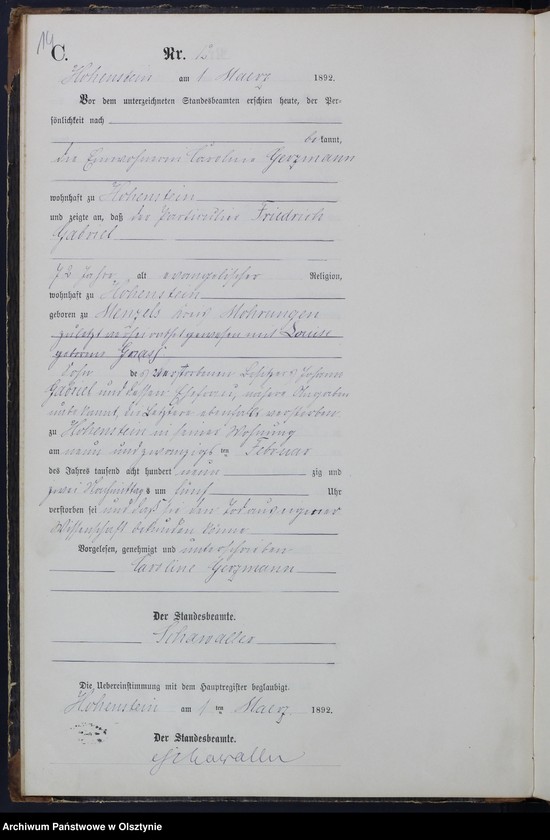 14
C.
Nr.
Hohenstein am 1 Maerz 1892.
Vor dem unterzeichneten Standesbeamten erschien heute, der Per-
sönlichkeit nach
bekannt,
die Einwohnerin Caroline Gerzmann
wohnhaft zu Hohenstein
und zeigte an, daß der Particulier Friedrich
Gabriel
72 Jahr alt evangelischer Religion,
wohnhaft zu Hohenstein
geboren zu Menzels Kreis Mohrungen
zuletzt verheirathet gewesen mit Louise
geborene
Sohn des verstorbenen Besitzers Johann
Gabriel und dessen Ehefrau, nähere Angaben
unbekannt, die Letztere ebenfalls verstorben
zu Hohenstein in seiner Wohnung
am neun und zwanzigsten Februar
des Jahres tausend acht hundert neun zig und
zwei Nachmittags um fünf Uhr
verstorben sei und daß sie den Tod aus eigener
Wissenschaft bekunden könne
Vorgelesen, genehmigt und unterschrieben
Caroline Gerzmann
Der Standesbeamte.
Schawaller
Die Uebereinstimmung mit dem Hauptregister beglaubigt.
Hohenstein am 1 ten Maerz 1892.
Der Standesbeamte.
Schawaller
Archiwum Państwowe w Olsztynie